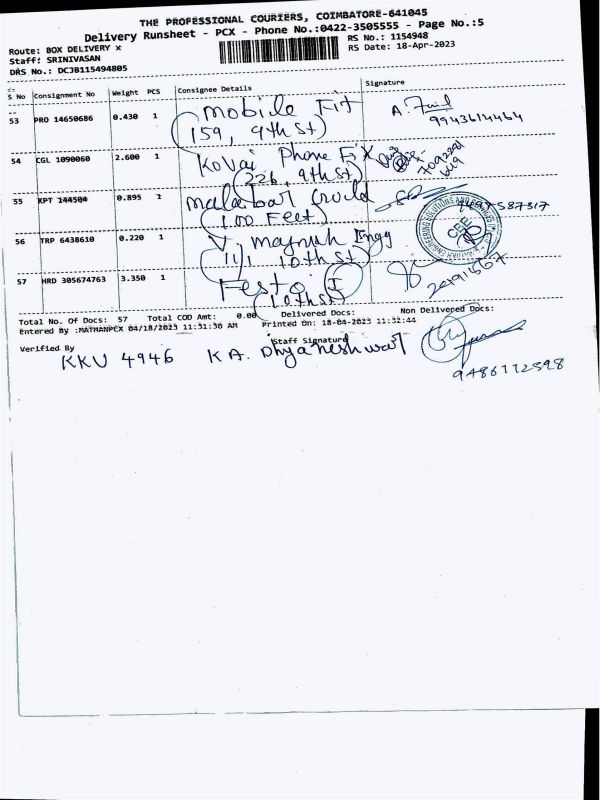 THE PROFESSIONAL COURIERS, COIMBATORE-641045
Delivery Runsheet - PCX - Phone No.:0422-3505555 - Page No.:5
Route: BOX DELIVERY x
RS No.: 1154948
Staff: SRINIVASAN
RS Date: 18-Apr-2023
DRS No.: DCJB115494805
S No Consignment No Weight PCS Consignee Details Signature
53 PRO 14650686 0.430 1 Mobile Fit A.
(159, 9th St) 9943614464
54 CGL 1090060 2.600 1 Kovai Phone Fix
(226, 9th St)
55 KPT 144504 0.895 1 Malabar Gould
(100 Feet)
56 TRP 6438610 0.220 1 V. Maynuh Engg
(11, 10th St)
57 HRD 305674763 3.350 1 Festo (I)
(10th St)
Total No. Of Docs: 57 Total COD Amt: 0.00 Delivered Docs: Non Delivered Docs:
Entered By :MATHANPCX 04/18/2023 11:31:30 AM Printed On: 18-04-2023 11:32:44
Verified By Staff Signature
KKU 4946 KA. Dhyaneshwar
9486112598